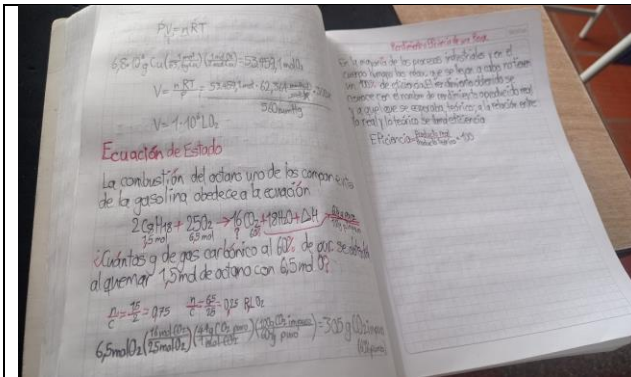 PV=nRT
V = nRT/P =
560mmHg
V = 1·10⁶ LO₂
Ecuación de Estado
La combustión del octano uno de los componentes
de la gasolina obedece a la ecuación
2C₈H₁₈ + 25O₂ → 16CO₂ + 18H₂O + ΔH
1,5 mol 6,5 mol ?
¿Cuántos g de gas carbónico al 60% de pureza se
al quemar 1,5 mol de octano con 6,5 mol O₂?
n/c = 1,5/2 = 0,75 n/c = 6,5/25 = 0,25 R.L O₂
6,5molO₂ (16molCO₂/25molO₂) (44g CO₂ puro/1molCO₂) (100g CO₂ impuro/60g puro) = 305 g CO₂ impuro
En la mayoría de los procesos industriales y en el
cuerpo humano las rxns que se llevan a cabo no tienen
un 100% de eficiencia. El rendimiento obtenido se
conoce con el nombre de rendimiento o producido real
y aquel que se esperaba, teórico, a la relación entre
lo real y lo teórico se llama eficiencia
Eficiencia = Producto real/Producto teórico × 100